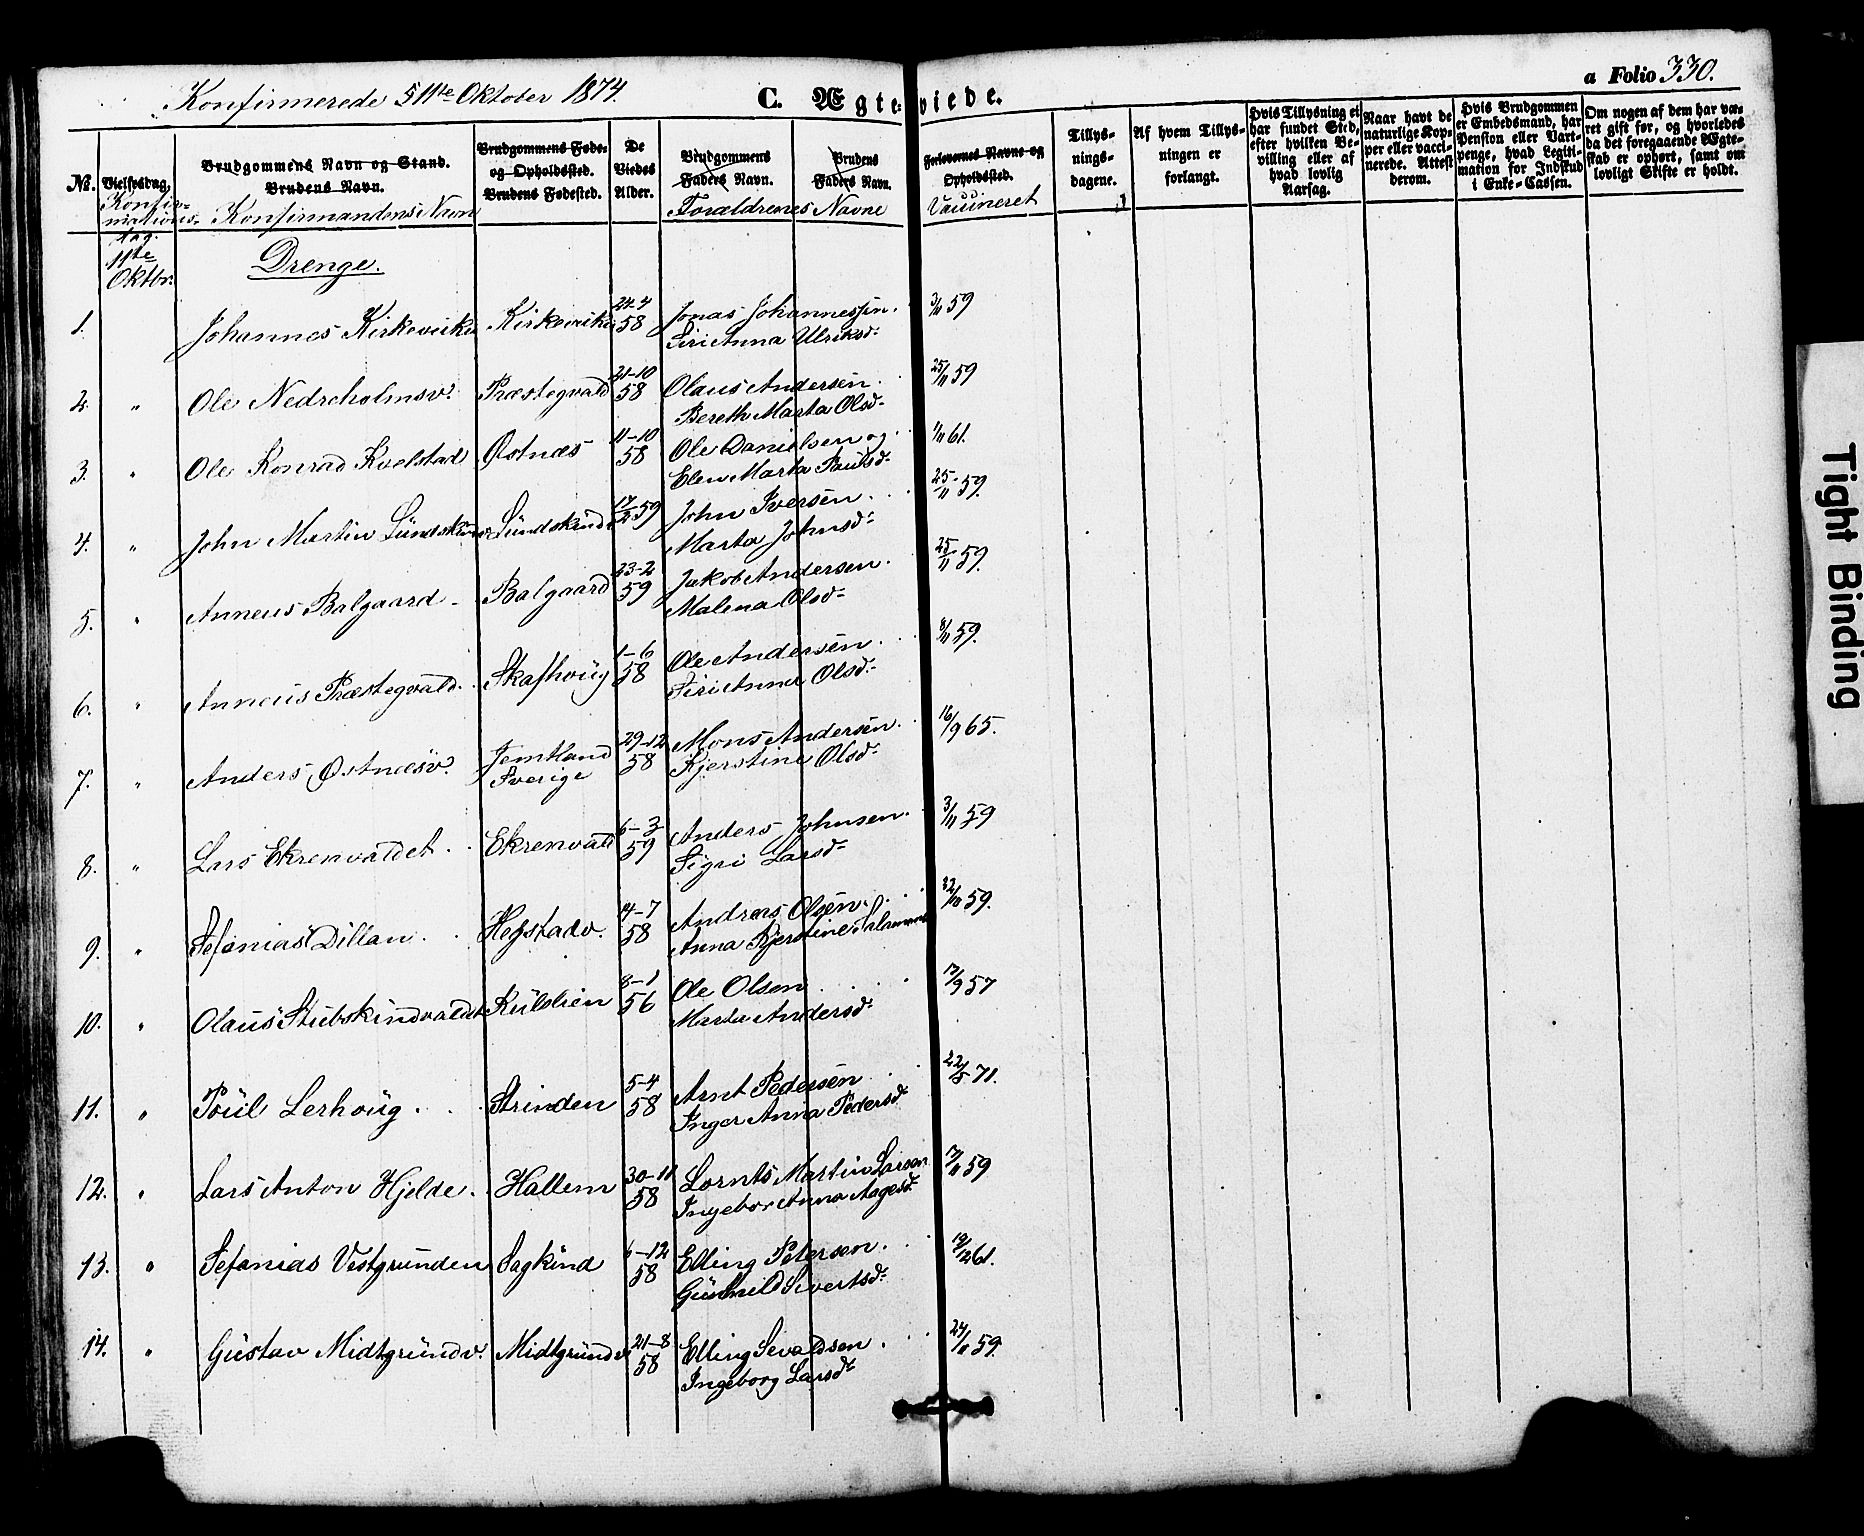 Konfirmerede 11te Oktober 1874.
C. Ægteviede.
a Folio 330.
No.
Vielsesdag.
Konfirmations-dag.
Brudgommens Navn og Stand.
Brudens Navn.
Konfirmandens Navn
Brudgommens Føde-
og Opholdssted.
Brudens Fødested.
De
Viedes
Alder.
Brudgommens
Faders Navn.
Brudens
Faders Navn.
Forældrenes Navne
Forlovernes Navne og
Opholdssted.
Vaccineret
Tillys-
nings-
dagene.
Af hvem Tillys-
ningen er
forlangt.
Hvis Tillysning ei
har fundet Sted,
efter hvilken Be-
villing eller af
hvad lovlig
Aarsag.
Naar havt de
naturlige Kop-
per eller vacci-
nerede. Attest
derom.
Hvis Brudgommen
er Embedsmand, har
Pension eller Vart-
penge, hvad Legiti-
mation for Indskud
i Enke-Cassen.
Om nogen af dem har væ-
ret gift før, og hvorledes
da det foregaaende Ægte-
skab er ophørt, samt om
lovligt Skifte er holdt.
11te
Oktbr.
Drenge.
1. Johannes Kirkevirke Kirkevike 24-4 58 Jonas Johannessen. 3/11 59
Siri Anna Ulriksd:
2. " Ole Nedreholmsv. Præstegvald 21-10 58 Olaus Andersen. 25/11 59
Bereth Marta Olsd:
3. " Ole Konrad Kvelstad Østnæs 11-10 58 Ole Danielsen og 1/11 61.
Elen Marta Paulsd:
4. " John Martin Sundskinv. Sundskind 17/2 59 John Iversen. 25/11 59.
Marta Johnsd:
5. " Anneus Balgaard Balgaard 23-2 59 Jakob Andersen. 25/11 59.
Malena Olsd:
6. " Anneus Præstegvald. Skafhoug 1-6 58 Ole Andersen. 8/11 59.
Siri Anna Olsd:
7. " Anders Østnæsv. Jemtland 29-12 58 Mons Andersen. 16/9 65.
Sverige Kjerstine Olsd:
8. " Lars Ekrenvaldet. Ekrenvald 6-3 59 Anders Johnsen. 3/11 59
Sigri Larsd:
9. " Sefanias Dillan. Hegstadv. 4-7 58 Andreas Olsen. 22/10 59.
Anna Kjerstine
10. " Olaus Stubskindvaldet Kulslien 8-1 56 Ole Olsen 17/9 57
Marta Andersd:
11. " Poul Lerhoug. Strinden 5-4 58 Arnt Pedersen 22/5 71.
Inger Anna Pedersd.
12. " Lars Anton Hjelde. Hallem 30-11 58 Lornts Martin Larsen 17/11 59
Ingebor Anna Aagesd:
13. " Sefanias Vestgrunden Sagkind 6-12 58 Elling Petersen. 19/12 61.
Gunhild Sivertsd:
14. " Gustav Midtgrundv. Midtgrundv 21-8 58 Elling Sevaldsen. 24/11 59.
Ingeborg Larsd:
Tight Binding